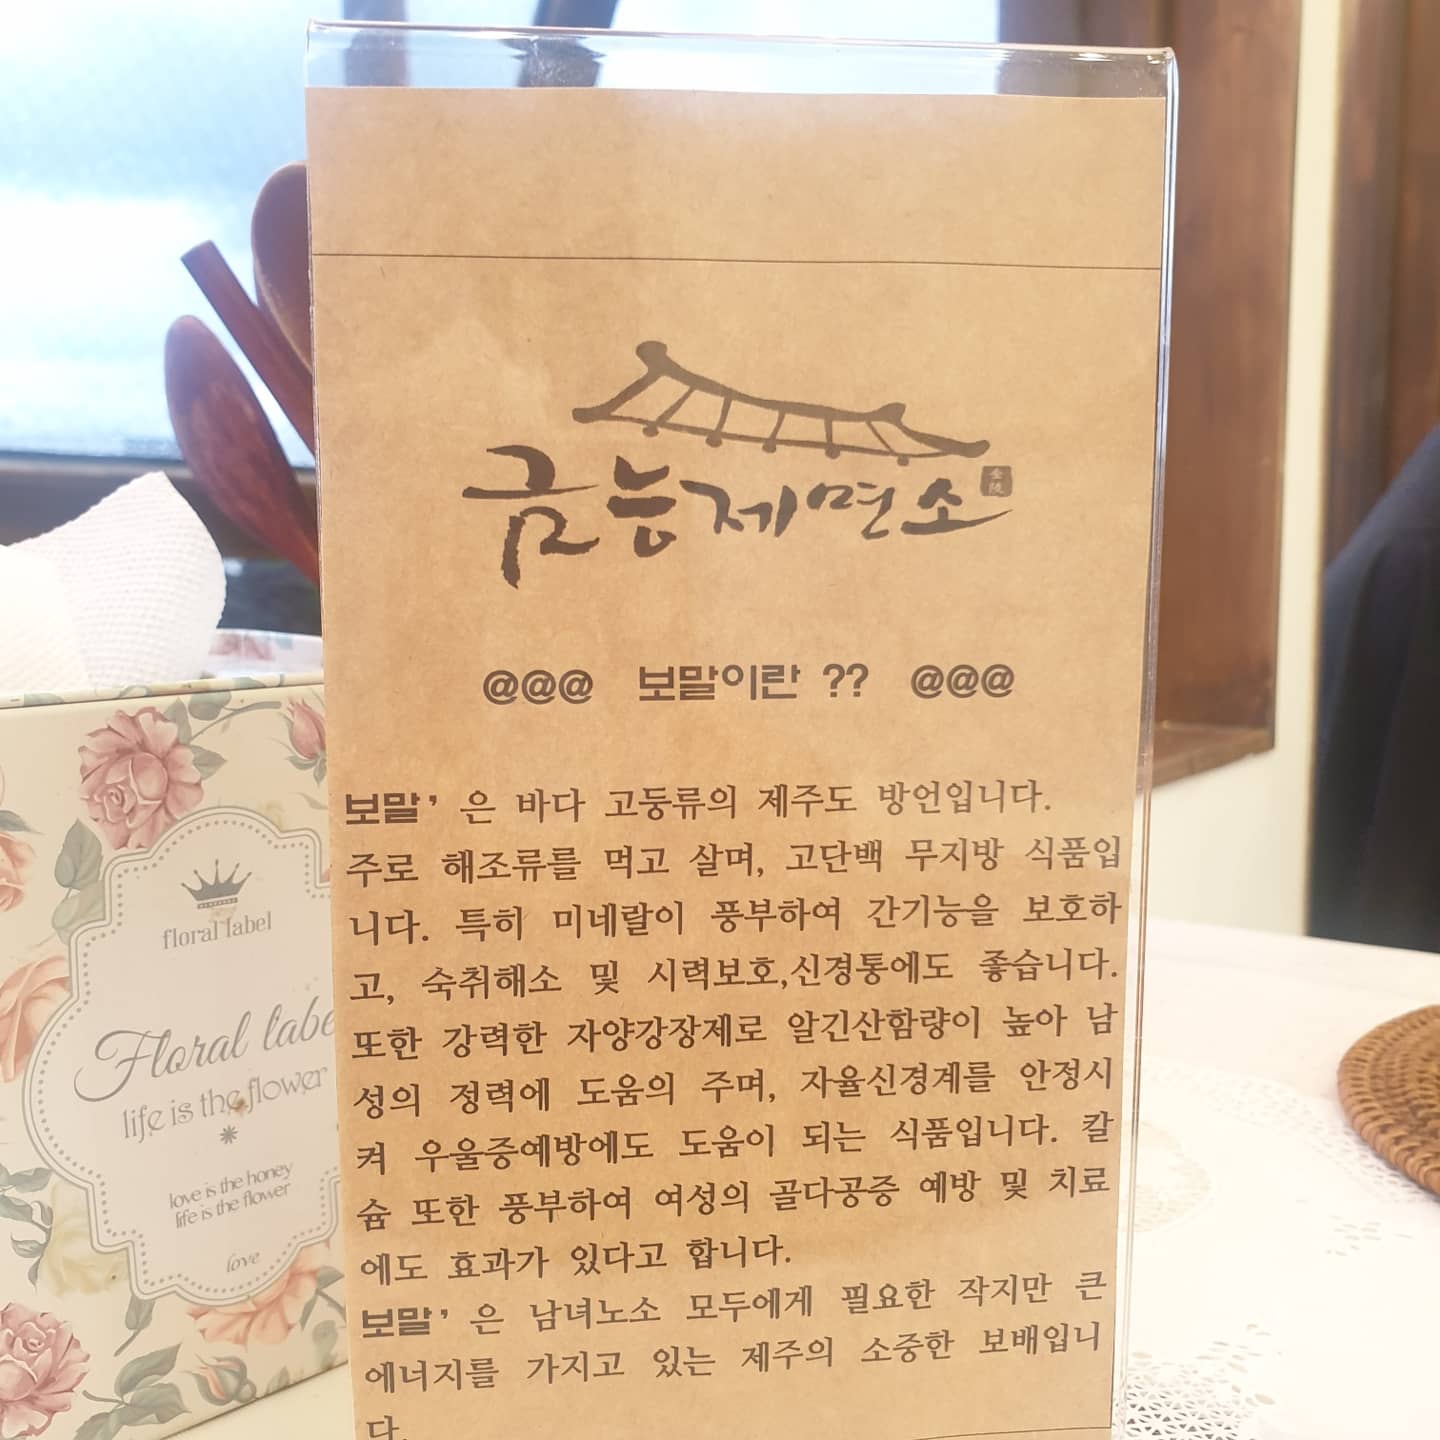 금능제면소
金陵
@@@ 보말이란 ?? @@@
보말’ 은 바다 고둥류의 제주도 방언입니다.
주로 해조류를 먹고 살며, 고단백 무지방 식품입
니다. 특히 미네랄이 풍부하여 간기능을 보호하
고, 숙취해소 및 시력보호,신경통에도 좋습니다.
또한 강력한 자양강장제로 알긴산함량이 높아 남
성의 정력에 도움의 주며, 자율신경계를 안정시
켜 우울증예방에도 도움이 되는 식품입니다. 칼
슘 또한 풍부하여 여성의 골다공증 예방 및 치료
에도 효과가 있다고 합니다.
보말’ 은 남녀노소 모두에게 필요한 작지만 큰
에너지를 가지고 있는 제주의 소중한 보배입니
다.
floral label
Floral labe
life is the flower
love is the honey
life is the flower
love